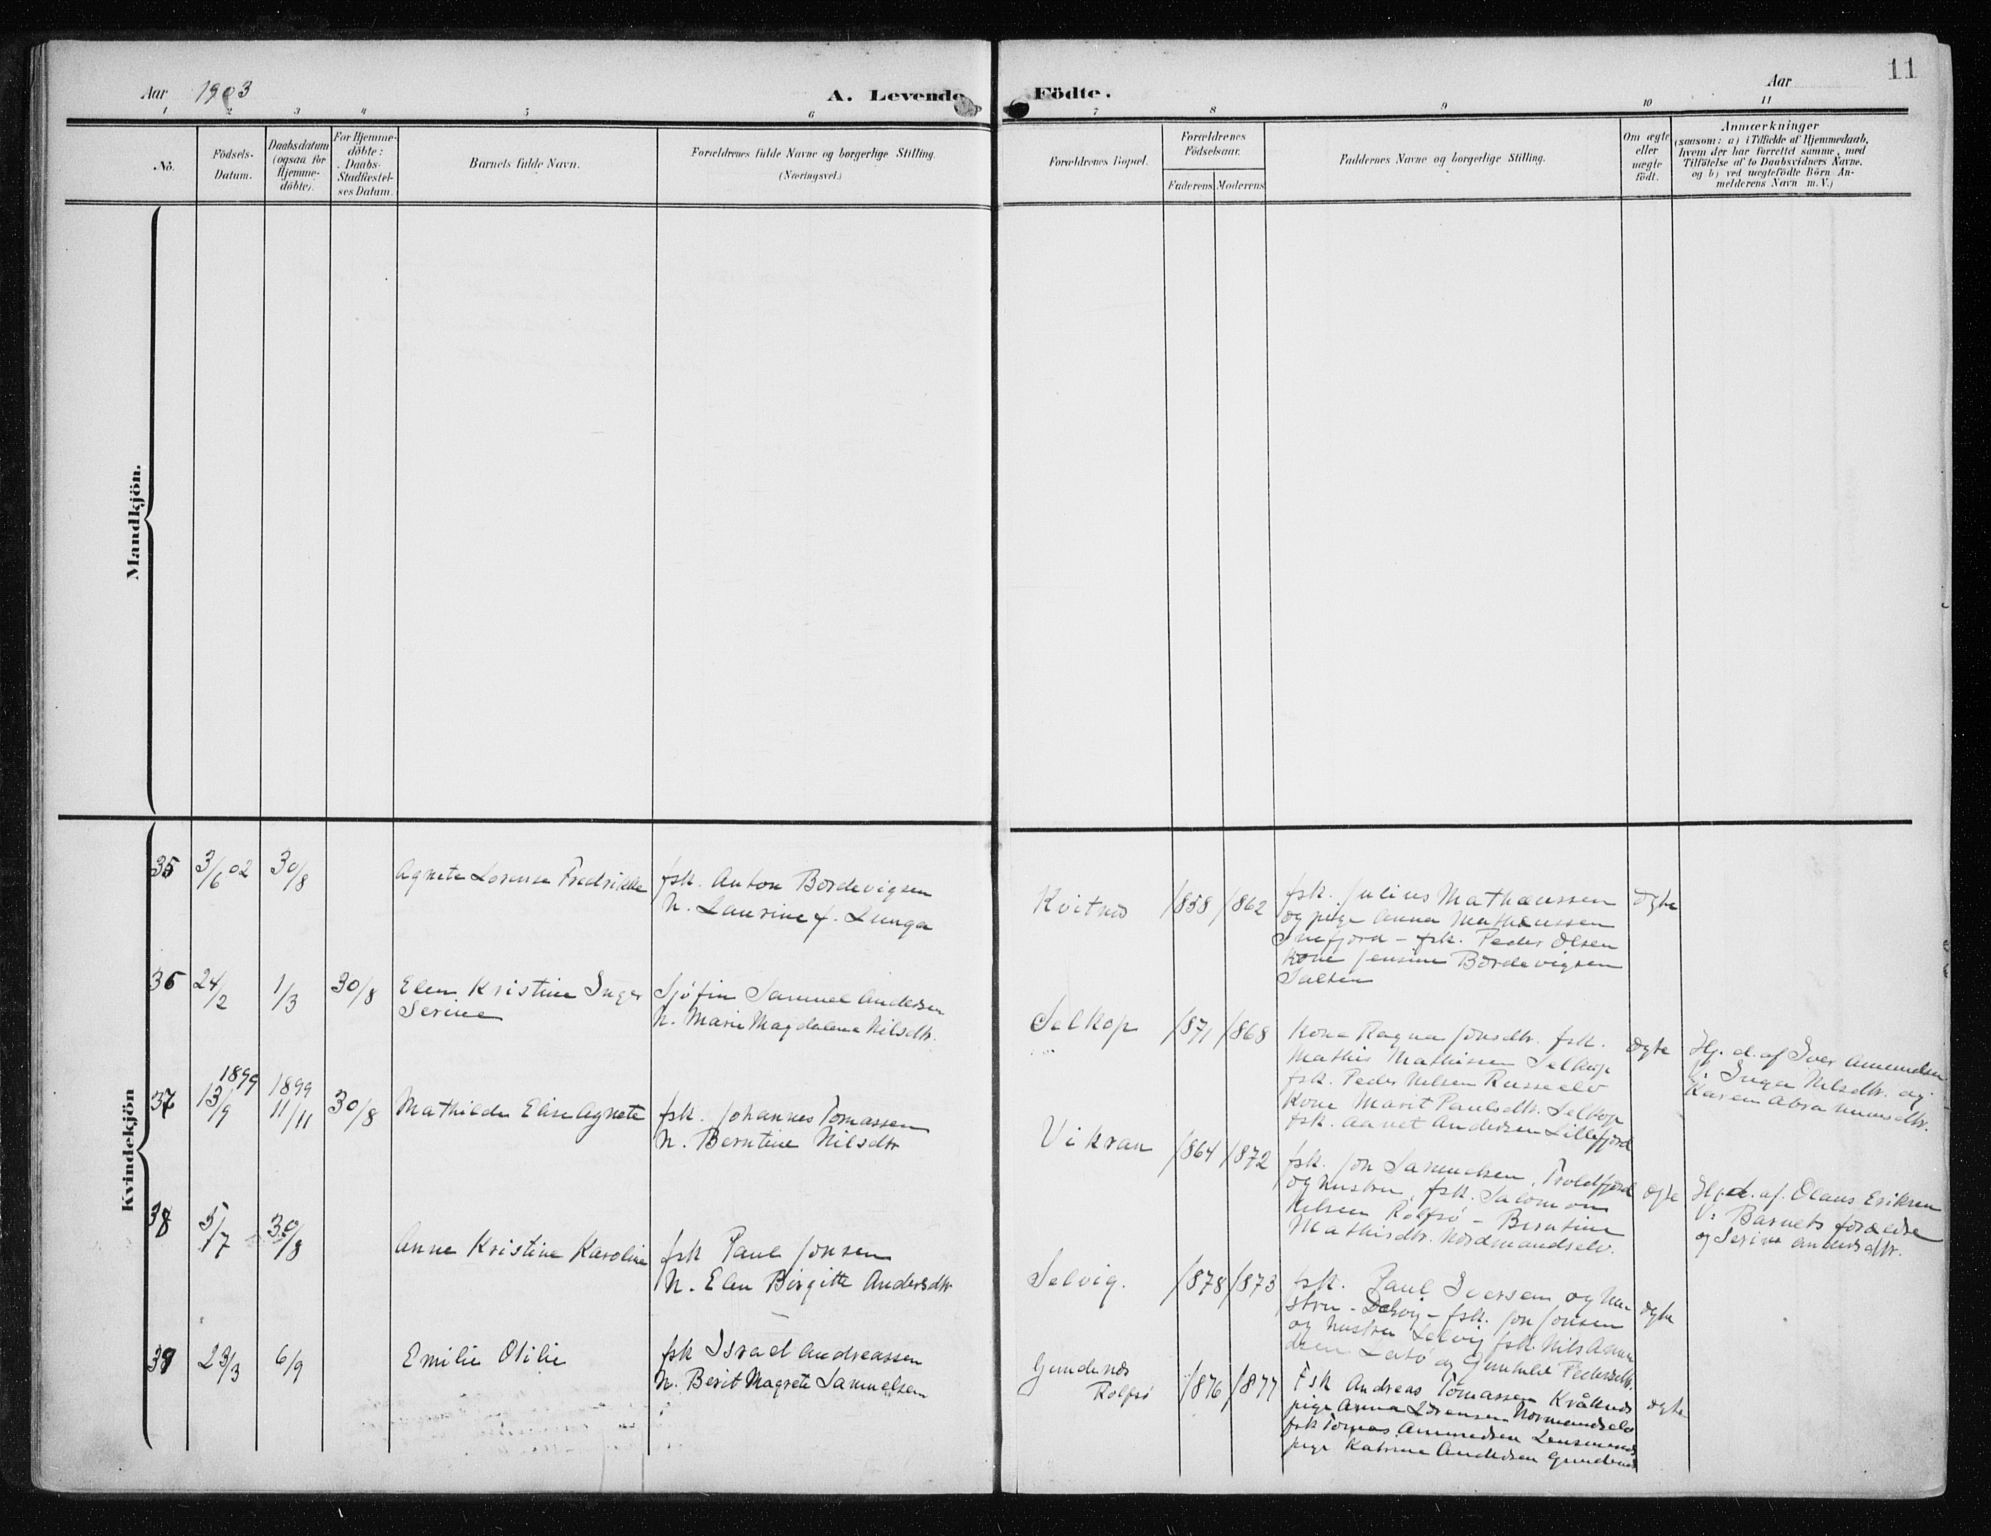 11
Aar 1903
A. Levende Födte.
Aar
1 2 3 4 5 6 7 8 9 10 11
No.
Födsels-
Datum.
Daabsdatum
(ogsaa for
Hjemme-
döbte).
For Hjemme-
döbte:
Daabs-
Stadfæstel-
ses Datum.
Barnets fulde Navn.
Forældrenes fulde Navne og borgerlige Stilling.
(Næringsvei.)
Forældrenes Bopæl.
Forældrenes
Födselsaar.
Faderens Moderens
Faddernes Navne og borgerlige Stilling.
Om ægte
eller
uægte
födt.
Anmærkninger
(saasom: a) i Tilfælde af Hjemmedaab,
hvem der har forrettet samme, med
Tilföielse af to Daabsvidners Navne.
og b) ved uægtefödte Börn An-
melderens Navn m. V.)
Mandkjön.
Kvindekjön
35 3/6 02 30/8 Agnete Lorense Fredrikke
fsk. Anton Bordevigsen
h. Laurine f. Lunga
Kvitnæs 1858 1862
fsk. Julius Mathæussen
og pige Anna Mathæussen
Snefjord - fsk. Peder Olsen
Kone Jensine Bordevigsen
Salten
ægte
36 24/2 1/3 30/8 Elen Kristine Inger
Serine
Sjøfin Samuel Andersen
h. Marie Magdalena Nilsdtr.
Selkop 1871 1868
Kone Ragna Jonsdtr. fsk.
Mathis Mathisen Selkop
fsk. Peder Nilsen Russeelv
Kone Marit Paulsdtr. Selkop
fsk. Anders Andersen Lillefjord
ægte
Hj. d. af Iver Amundsen
v. Inga Nilsdtr. og
Karen Abrahamsdtr.
37 1899 13/9 1899 11/11 30/8 Mathilde Elise Agnete
fsk. Johannes Tomassen
h. Berntine Nilsdtr
Vikran 1864 1872
fsk. Jon Samuelsen, Troldfjord
og hustru, fsk. Salomon
Nilsen Rolfsø - Berntine
Mathisdtr. Nordmandselv.
ægte
Hj. d. af. Olaus Eriksen
v: Barnets forældre
og Serine Andersdtr.
38 5/7 30/8 Anne Kristine Karoline
fsk Paul Jonsen
h. Elen Birgitte Andersdtr
Selvig. 1878 1873
fsk. Paul Iversen og hu-
stru - Selvig - fsk. Jon Jonsen
og hustru Selvig fsk. Nils Amun
dsen Latø og Gunhild Pedersdtr.
ægte
39 23/3 6/9 Emilie Otilie
fsk Israel Andreassen
h. Berit Magrete Samuelsen
Gundenæs
Rolfsø 1876 1877
Fsk Andreas Tomassen Kvålnæs
pige Anna Lorensen Normandselv
fsk Tomas Amundsen
pige Katrine Andersen Gundenæs
ægte